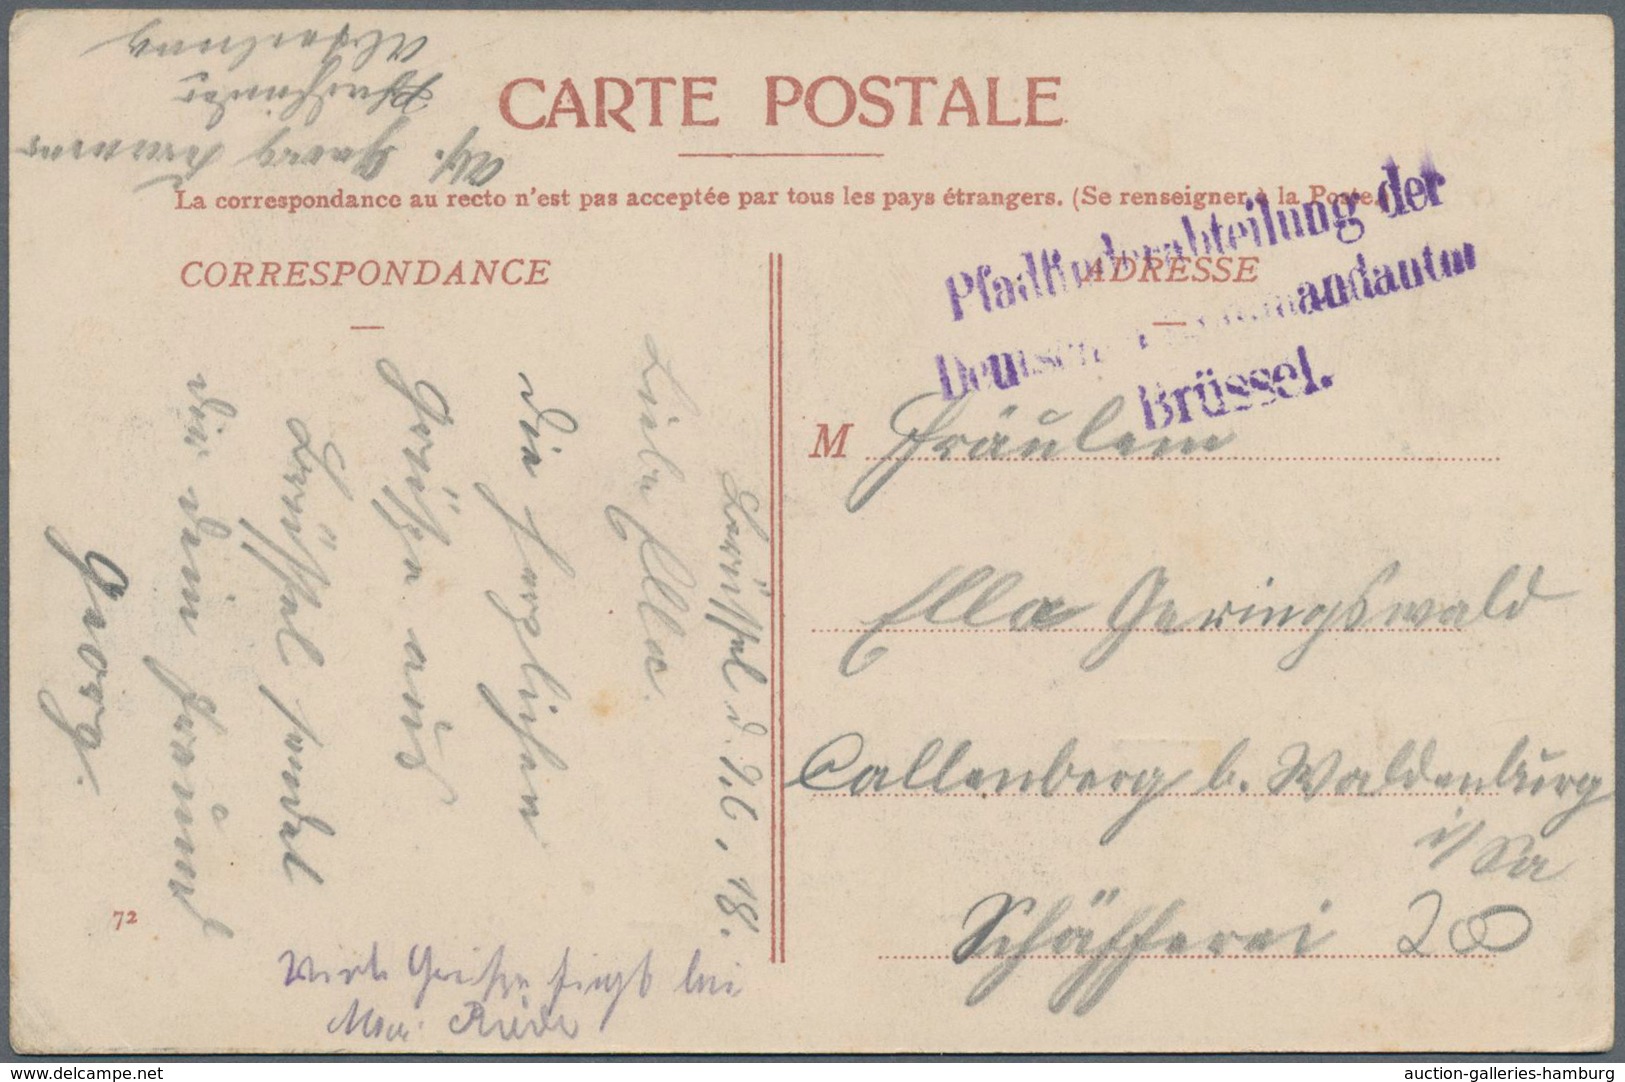 Abteilung
Pfadfinder
Abs. Georg
CARTE POSTALE
La correspondance au recto n'est pas acceptée par tous les pays étrangers. (Se renseigner à la Poste.)
CORRESPONDANCE
ADRESSE
Pfadfinderabteilung der
Deutschen Kommandantur
Brüssel.
Brüssel d. 7.6.18.
Liebe Ella.
Die herzlichen
Grüße aus
Brüssel sendet
dir dein Freund
Georg.
72
M Fräulein
Ella Geringswald
Callenberg b. Waldenburg
i/Sa
Schäfferei 20
Grüße
delcampe.net
auction-galleries-hamburg